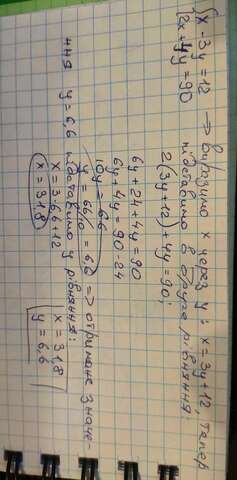 {x - 3y = 12 => виразимо x через y: x = 3y + 12, тепер
{2x + 4y = 90 підставимо в друге рівняння:
2(3y + 12) + 4y = 90;
6y + 24 + 4y = 90
6y + 4y = 90 - 24
10y = 66
y = 66/10 = 6,6 => отримане значе-
ння y = 6,6 підставимо у рівняння:
x = 3·6,6 + 12
x = 31,8
x = 31,8
y = 6,6